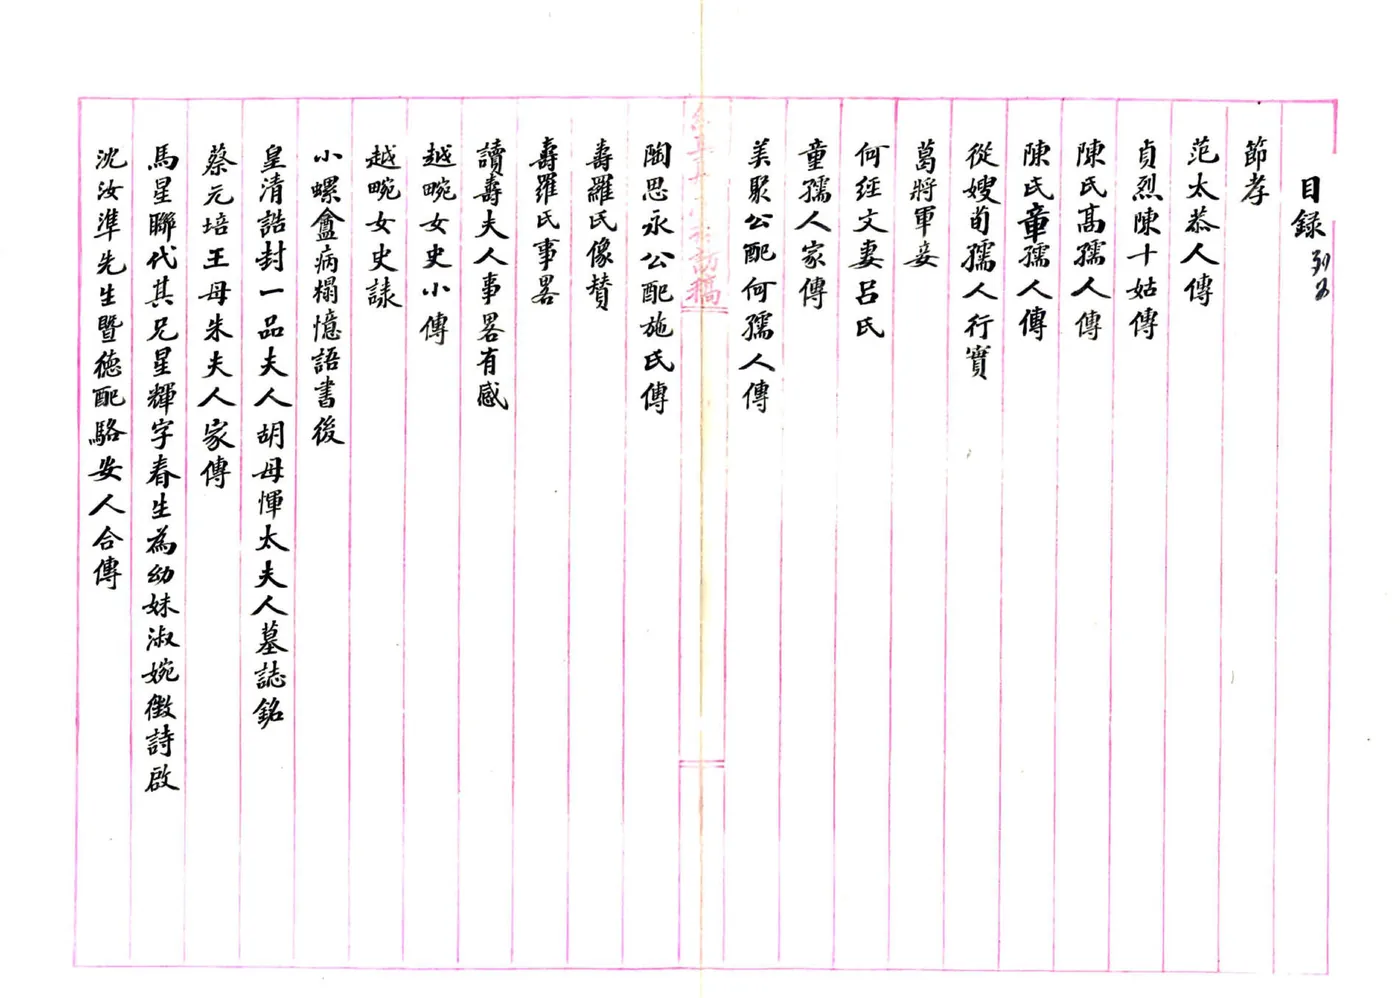 目錄 列女
節孝
范太恭人傳
貞烈陳十姑傳
陳氏高孺人傳
陳氏章孺人傳
從嫂荀孺人行實
葛將軍妾
何經文妻呂氏
童孺人家傳
美聚公配何孺人傳
訪稿
陶思永公配施氏傳
壽羅氏像贊
壽羅氏事畧
讀壽夫人事畧有感
越畹女史小傳
越畹女史誄
小螺盦病榻憶語書後
皇清誥封一品夫人胡母惲太夫人墓誌銘
蔡元培王母朱夫人家傳
馬星聯代其兄星輝字春生為幼妹淑婉徵詩啟
沈汝準先生暨德配駱安人合傳